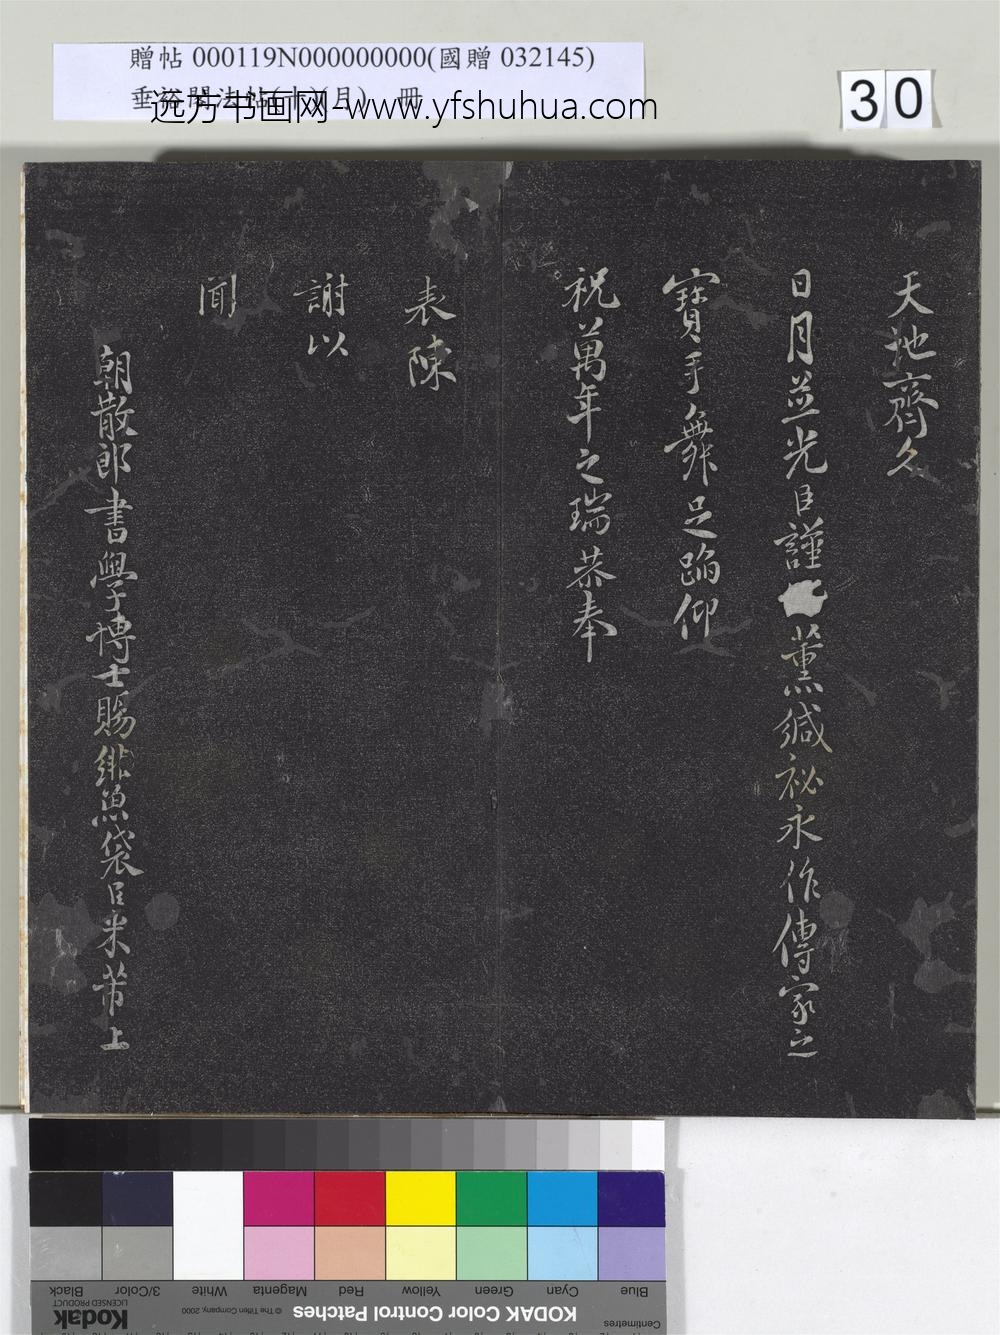 贈帖 000119N000000000(國贈 032145)
远方书画网-www.yfshuhua.com
30
天地齊久
日月並光臣謹薰緘祕永作傳家之
寶手舞足蹈仰
祝萬年之瑞恭奉
表陳
謝以
聞
朝散郎書學博士賜緋魚袋臣米芾上
Black
3/Color
White
Magenta
Red
Yellow
Green
Cyan
Blue
Kodak
LICENSED PRODUCT
© The Tiffen Company, 2000
KODAK Color Control Patches
Centimetres